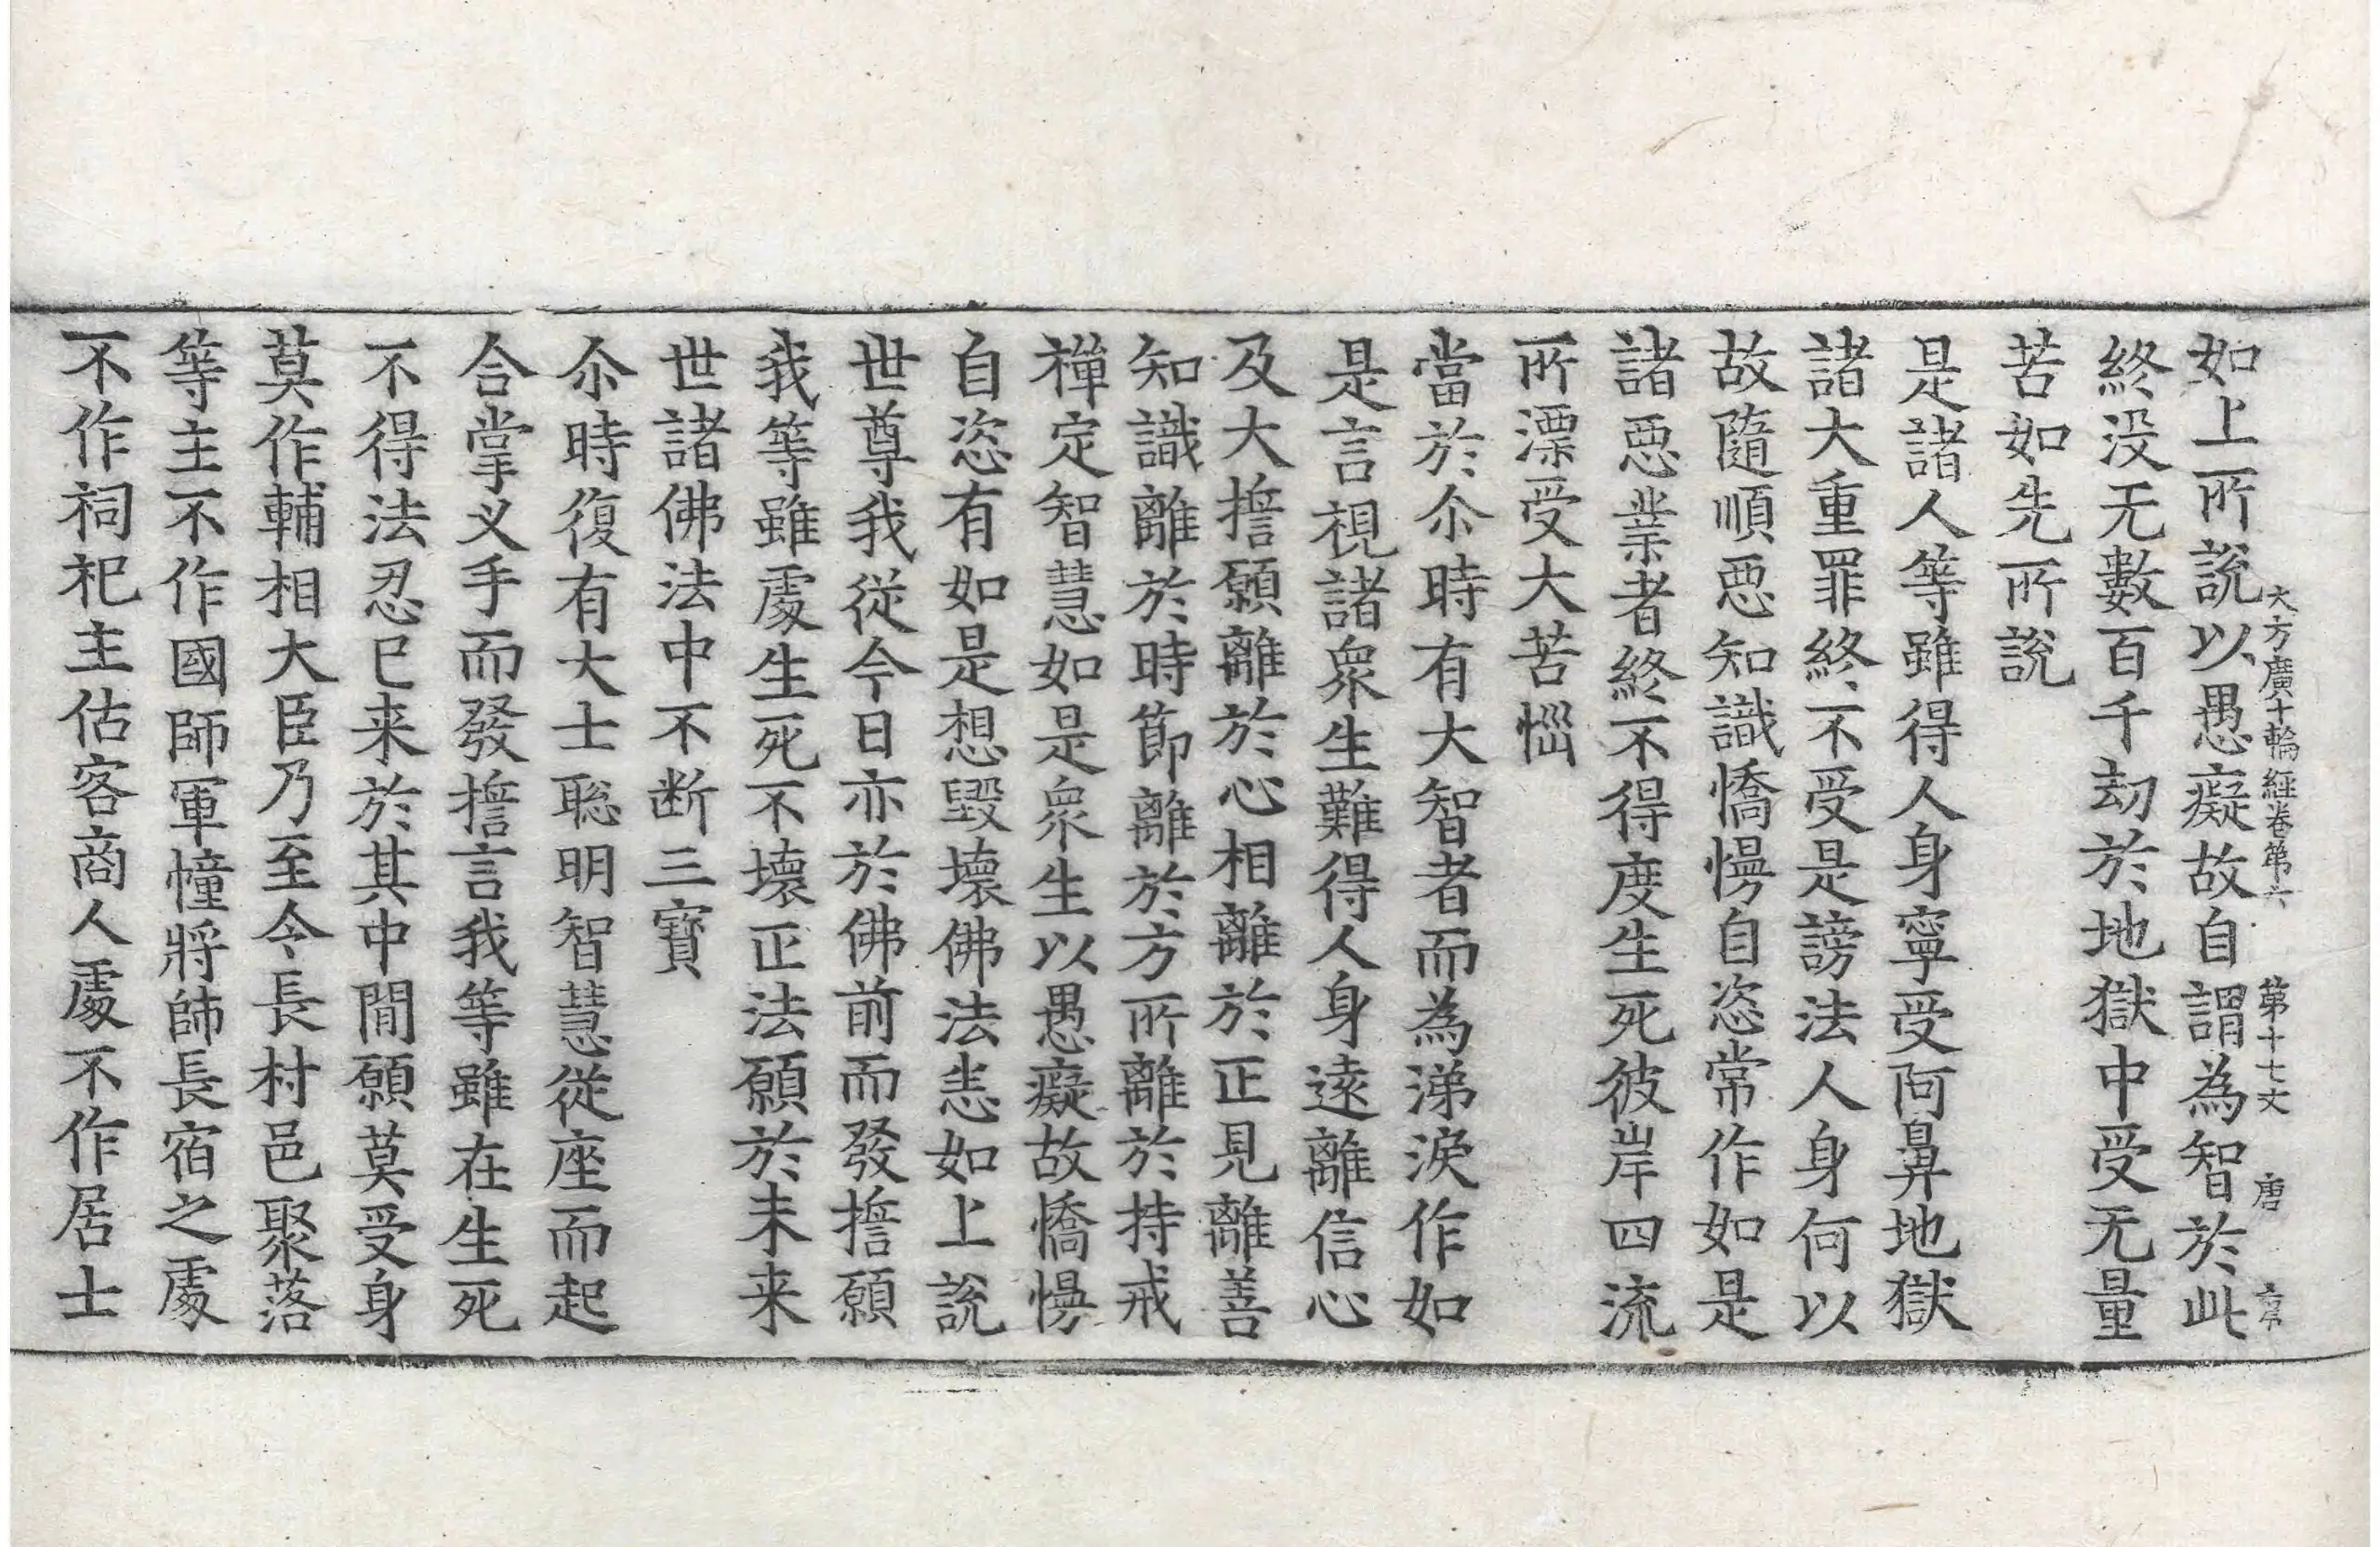 大方廣十輪經卷第六　第十七丈　唐
如上所說以愚癡故自謂為智於此
終没无數百千劫於地獄中受无量
苦如先所說
是諸人等雖得人身寧受阿鼻地獄
諸大重罪終不受是謗法人身何以
故隨順惡知識憍慢自恣常作如是
諸惡業者終不得度生死彼岸四流
所漂受大苦惱
當於尒時有大智者而為涕淚作如
是言視諸衆生難得人身遠離信心
及大擔願離於心相離於正見離善
知識離於時節離於方所離於持戒
禅定智慧如是衆生以愚癡故憍慢
自恣有如是想毀壞佛法恚如上說
世尊我從今日亦於佛前而發擔願
我等雖處生死不壞正法願於未来
世諸佛法中不断三寶
尒時復有大士聡明智慧從座而起
合掌义手而發擔言我等雖在生死
不得法忍已来於其中閒願莫受身
莫作輔相大臣乃至令長村邑聚落
等主不作國師軍幢將帥長宿之處
不作祠祀主估客商人處不作居士